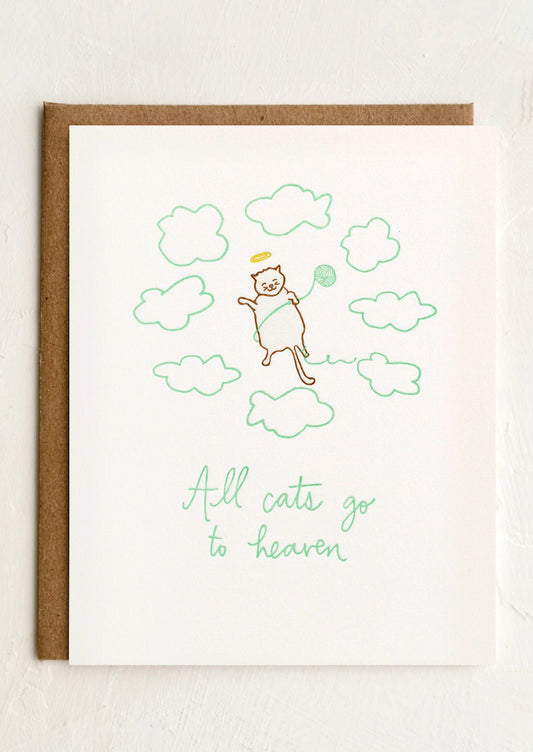 All cats go
to heaven